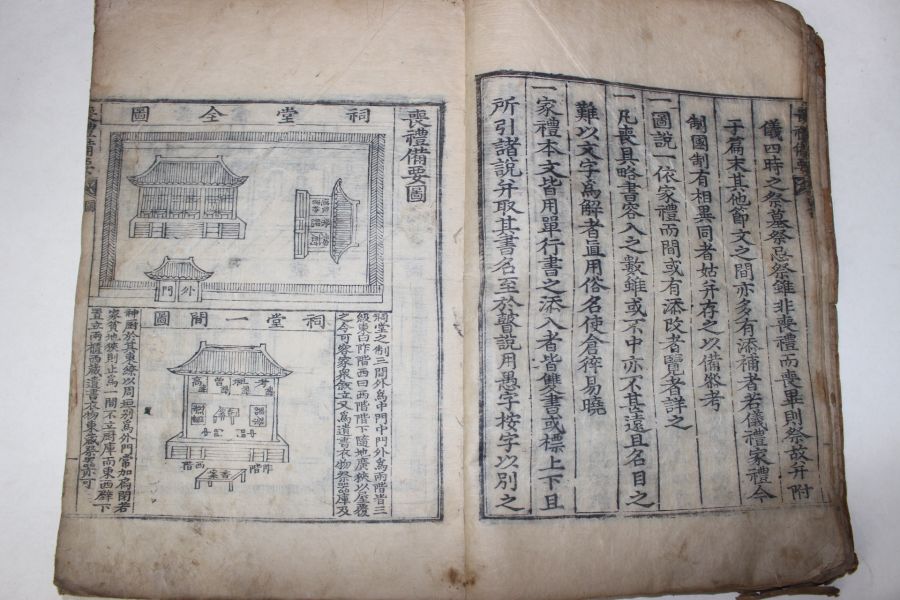 喪禮備要
儀四時之祭墓祭忌祭雖非喪禮而喪畢則祭故并附
于篇末其他節文之間亦多有添補者若儀禮家禮今
制國制有相異同者姑并存之以備參考
一圖說一依家禮而間或有添改者覽者詳之
一凡喪具略書容入之數雖或不中亦不甚遠且名目之
難以文字爲解者直用俗名使倉猝易曉
一家禮本文皆用單行書之添入者皆雙書或標上下且
所引諸說并取其書名至於瞽說用愚字按字以別之
喪禮備要圖
祠堂全圖
外門
祠堂之制三間外爲中門中門外爲兩階皆三
級東曰阼階西曰西階階下隨地廣狹以屋覆
之令可容家衆叙立又爲遺書衣物祭器庫及
祠堂一間圖
考
祖
曾
高
阼階
西階
香案
神廚於其東繚以周垣別爲外門常加扃閉若
家貧地狹則止爲一間不立廚庫而東西壁下
置立兩櫃西藏遺書衣物東藏祭器亦可
喪禮備要
圖